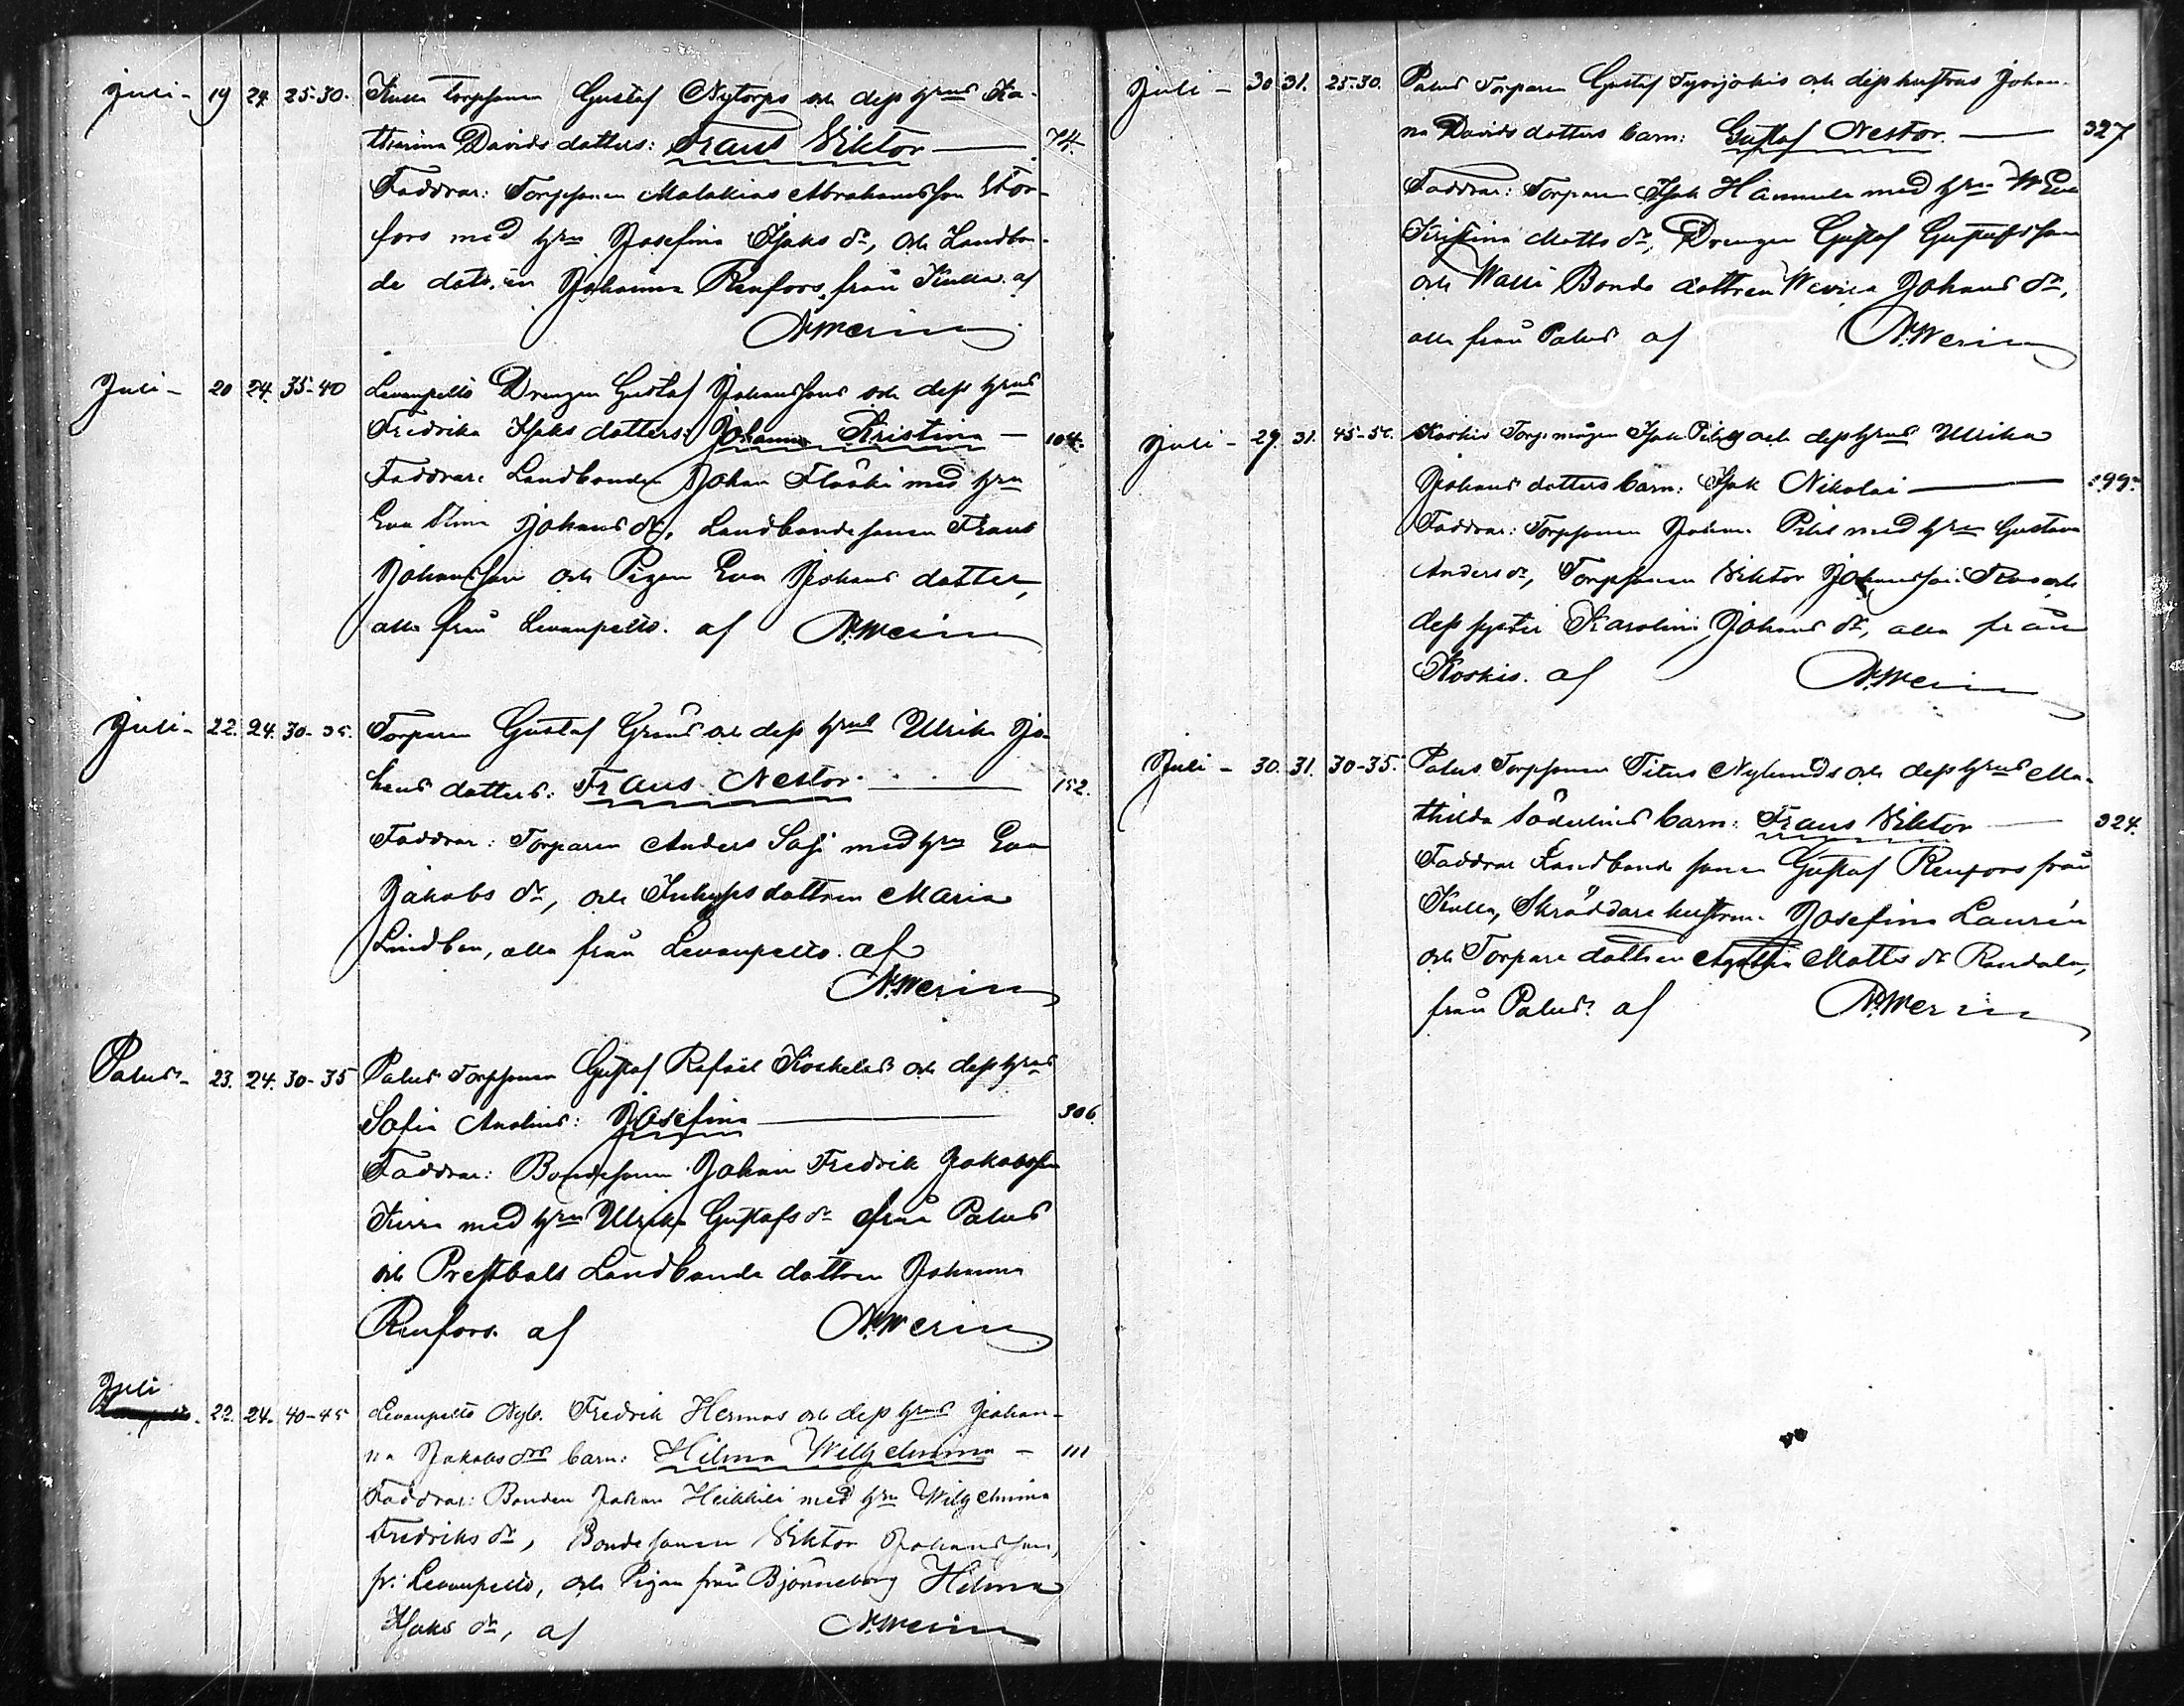 Juli - 19 24. 25-30. Kulla torpsonen Gustaf Nytorps och dess hrus Ka-
tharina Davids datters: Frans Viktor — 74.
Faddrar: Torpsonen Malakias Abrahamsson Stor-
fors med hrn Josefina Isaks dr, och Landbon-
de datren Johanna Renfors, från Kulla. af
N. Merin
Juli - 20 24. 35-40 Levanpelto Drengen Gustaf Johanssons och dess hrus
Fredrika Isaks datters: Johanna Kristina — 104.
Faddrar: Landbonden Johan Flaaki med hrn
Eva Stina Johans dr, Landbondesonen Frans
Johansson och Pigan Eva Johans datter,
alla från Levanpelto. af N. Merin
Juli - 22. 24. 30-35. Torparen Gustaf Gröns och dess hrus Ulrika Jo-
hans datters: Frans Nestor. — 152.
Faddrar: Torparen Anders Sasi med hrn Eva
Jakobs dr, och Inhyses dattren Maria
Lindben, alla från Levanpelto. af
N. Merin
Palus - 23. 24. 30-35 Palus Torpsonen Gustaf Rafael Koskelas och dess hrus
Sofia Analius: Josefina — 306.
Faddrar: Bondesonen Johan Fredrik Jakobsson
Kirra med hrn Ulrika Gustafs dr från Palus
och Prestbols Landbonde dattren Johanna
Renfors. af N. Merin
Juli
22. 24. 40-45 Levanpelto Nyb. Fredrik Hermas och dess hrus Johan-
na Jakobs drs barn: Hilma Wilhelmina — 111
Faddrar: Bonden Johan Heikkilä med hrn Wilhelmina
Fredriks dr, Bondesonen Viktor Johansson,
fr. Levanpelto, och Pigan från Björneborg Hilma
Isaks dr, af N. Merin
Juli - 30 31. 25-30. Palus Torparen Gustaf Syvijokis och dess hustrus Johan-
na Davids datters barn: Gustaf Nestor. — 327
Faddrar: Torparen Isak Hammula med hrn Eva
Kristina Matts dr, Drengen Gustaf Gustafsson
och Bonde dattren Johans dr,
alla från Palus af N. Merin
Juli - 29. 31. 45-50. Koskis Torpmågen Isak och dess hrus Ulrika
Johans datters barn: Isak Nikolai — 299.
Faddrar: Torpsonen Johan med hrn Gustava
Anders dr, Torpsonen Viktor Johansson och
dess syster Karolina Johans dr, alla från
Koskis. af N. Merin
Juli - 30. 31. 30-35. Palus Torpsonen Titus Nylunds och dess hrus Ma-
thilda Söderlins barn: Frans Viktor — 324.
Faddrar Landbonde sonen Gustaf Renfors från
Kulla, Skräddare hustrun Josefina Laurén
och Torpare dattren Agatha Matts dr Randala,
från Palus. af N. Merin